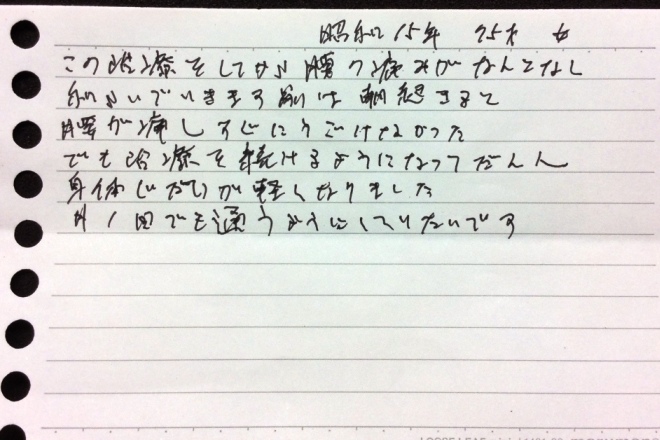 昭和15年 75才 女
この治療をしてから腰の痛みがなんとなし
和いでいきます前は朝起きると
腰が痛しすぐにうごけなかった
でも治療を続けるようになってだんだん
身体(からだ)が軽くなりました
月1回でも通うようにしていたいです